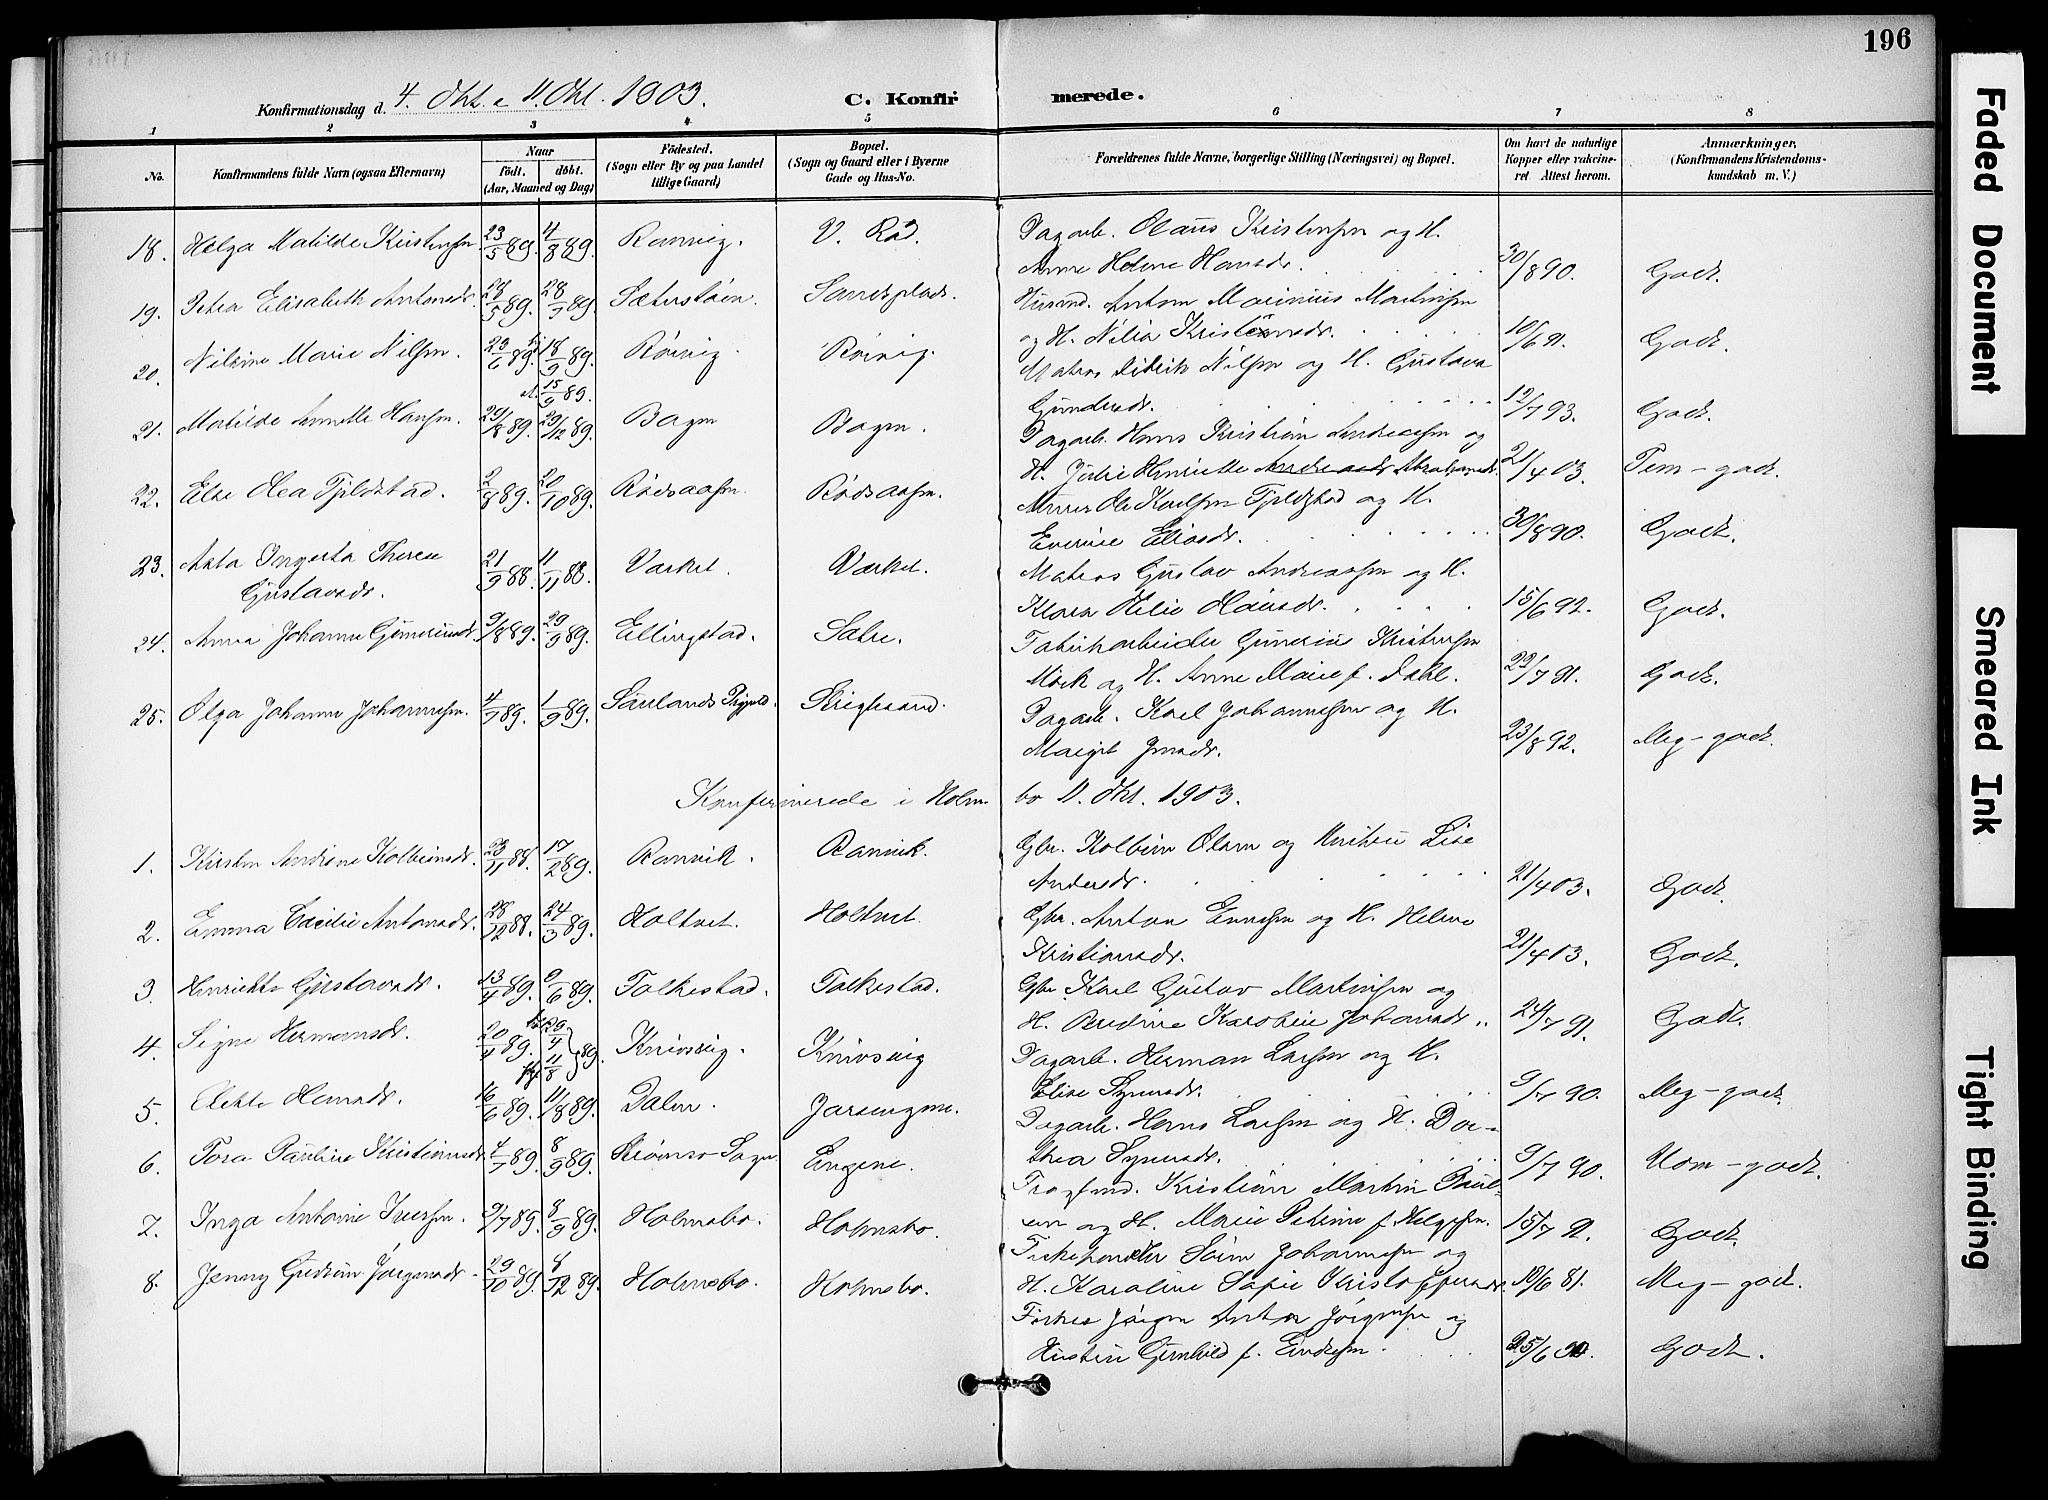 196
Konfirmationsdag d. 4. Okt. & 11. Okt. 1903.
C. Konfirmerede.
1 2 3 4 5 6 7 8
No.
Konfirmandens fulde Navn (ogsaa Efternavn)
Naar
født. døbt.
(Aar, Maaned og Dag)
Fødested.
(Sogn eller By og paa Landet
tillige Gaard)
Bopæl.
(Sogn og Gaard eller i Byerne
Gade og Hus-No.
Forældrenes fulde Navne, borgerlige Stilling (Næringsvei) og Bopæl.
Om havt de naturlige
Kopper eller vakcine-
ret Attest herom.
Anmærkninger,
(Konfirmandens Kristendoms-
kundskab m. V.)
18. Helga Matilde Kristensen 23/5 89. 4/8 89. Ranvig. V. Rød. Dagarb. Olaus Kristensen og H.
Anne Helene Hansdr. 30/8 90. Godt.
19. Petra Elisabeth Antonsdr. 28/7 89. Sandsplads. Husmd. Anton Marinius Martinsen
og H. Nilia 10/6 91. Godt.
20. Nilsine Marie Nilsen. 18/9 89. Rørvig. Rørvig. Matros Didrik Nilsen og H. Gustava
15/9 89.
Gundersdr. 12/7 93. Godt.
21. Matilde Annette Hansen. 29/8 89. 29/12 89. Bagen. Bagen. Dagarb. Hans Kristian Andreassen og
H. Julie Henriette Andreasdr Abrahamsdr. 21/4 03. Tem-godt.
22. Else Olea Fjeldstad. 2/8 89. 20/10 89. Rødsaasen. Rødsaasen. Murer Ole Karlsen Fjeldstad og H.
Everine Eliasdr. 30/8 90. Godt.
23. Asta Ingerta Therese 21/9 88. 11/11 88. Varket. Værket. Matros Gustav Andreassen og H.
Gustavsdr.
Klara Helie Hansdr. 15/6 92. Godt.
24. Anna Johanne Guneriusdr. 9/8 89. 29/9 89. Ellingstad. Sætre. Fabrikarbeider Gunerius Kristensen
Mørk og H. Anne Marie f. Dahl. 22/7 91. Godt.
25. Olga Johanne Johannesen. 4/7 89. 1/9 89. Saulands Prgjeld. Dagarb. Karl Johannessen og H.
Margit Jensdr. 23/8 92. Meg-godt.
Konfirmerede i Holmsbo 11. Okt. 1903.
1. Kirsten Andrine Kolbeinsdr. 23/11 88. 17/2 89. Ranvik. Ranvik. Gbr. Kolbein Olsen og Hustru Lise
Andersdr. 21/4 03. Godt.
2. Emma Cecilie Antonsdr. 28/12 88. 24/3 89. Holtnet. Holtnet. Gbr. Anton Evensen og H. Helene
Kristiansdr. 21/4 03. Godt.
3. Henriette Gustavsdr. 13/4 89. 9/6 89. Folkestad. Folkestad. Gbr. Karl Gustav Martinsen og
H. Beredine Karoline Johansdr. 24/7 91. Godt.
4. Signe Hermansdr. 20/4 89. 29/4 11/8 89. Knivsvig. Knivsvig Dagarb. Herman Larsen og H.
Elise Synesdr. 9/7 90. Meg-godt.
5. Hansdr. 16/6 89. 11/8 89. Dalen. Dagarb. Hans Larsen og H. Dor-
thea Synesdr. 9/7 90. Udm-godt.
6. Tora Pauline Kristiansdr. 4/7 89. 8/9 89. Strømsø Sogn. Engene. Kristian Martin Paul-
sen og H. Marie Petrine f. Helgesen. 15/7 91. Godt.
7. Inga Antonie Iversen. 9/7 89. 8/9 89. Holmsbo. Holmsbo. Fiskehandler Johannessen og
H. Karoline Sofie Kristoffersdr. 10/6 81. Meg-godt.
8. Jenny Gudrun Jørgensdr. 29/10 89. 8/12 89. Holmsbo. Holmsbo. Fisker Jørgen Anton Jørgensen og
Hustru Gunhild f. 25/6 90. Godt.
Faded Document
Smeared Ink
Tight Binding